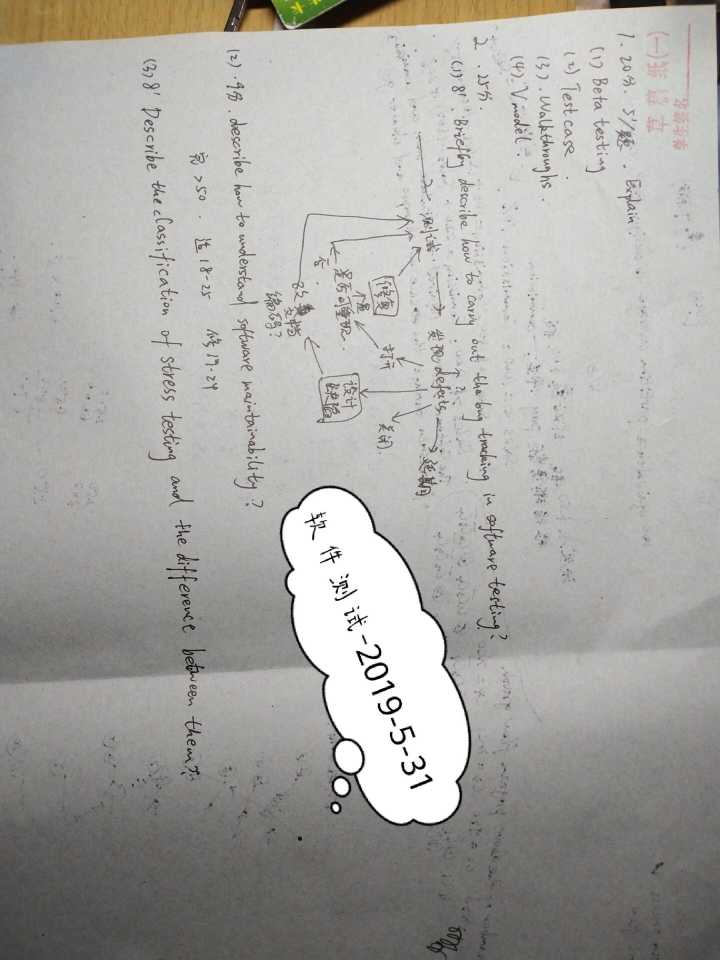 1. 20分. 5'/题. Explain
(1) Beta testing
(2) Test case.
(3). Walkthroughs.
(4). V model.
2. 25分.
(1) 8'. Briefly describe how to carry out the bug tracking in software testing?
测试
发现 defects
延期
修复
打开
关闭
是否可重现.
否.
设计
缺陷
文档
编码?
(2). 9分. describe how to understand software maintainability?
>50. 18-25 17-24
(3) 8' Describe the classification of stress testing and the difference between them?
软件测试-2019-5-31